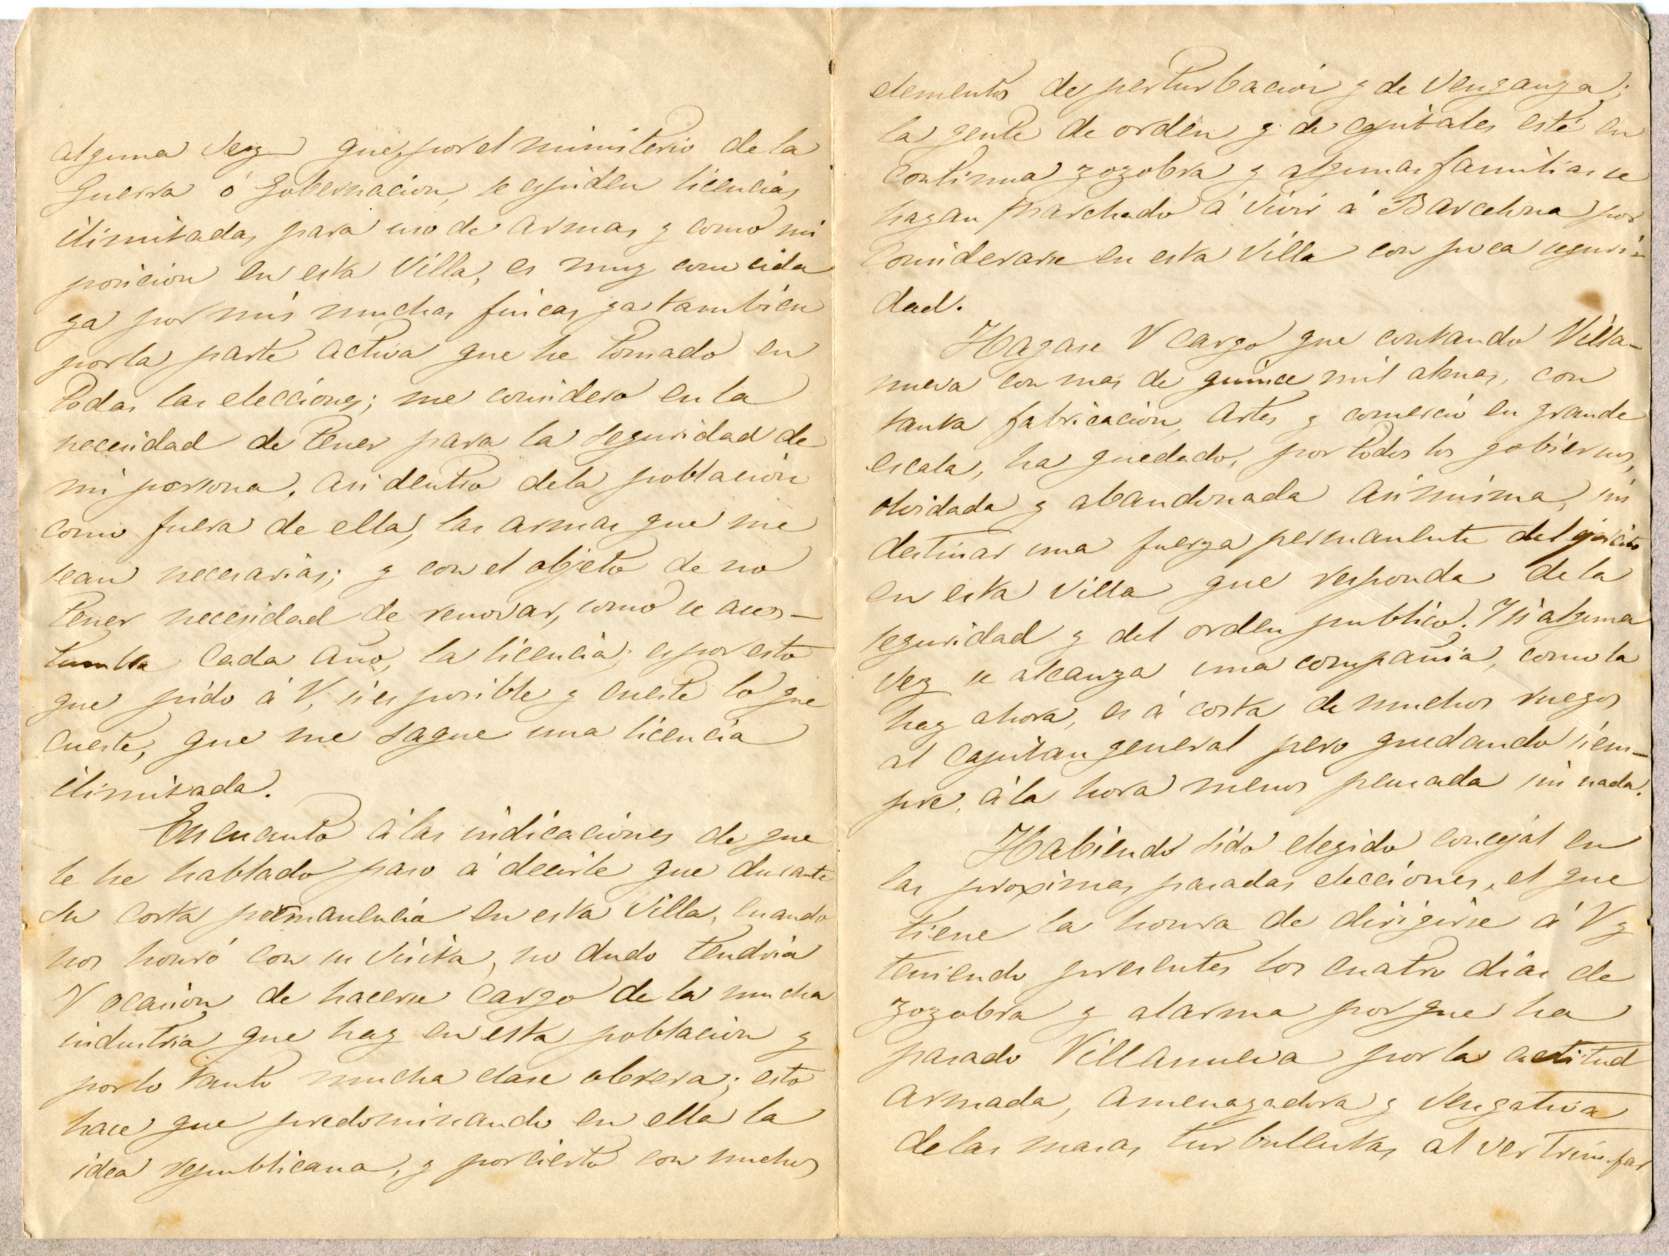 alguna vez que, por el ministerio de la
Guerra ó Gobernacion, se espiden licencias
ilimitadas para uso de armas y como mi
posicion en esta Villa, es muy conocida
ya por mis muchas fincas ya tambien
por la parte activa que he tomado en
todas las elecciones; me considero en la
necesidad de tener para la seguridad de
mi persona, asi dentro de la poblacion
como fuera de ella, las armas que me
sean necesarias; y con el objeto de no
tener necesidad de renovar, como se acos-
tumbra cada año, la licencia; es por esto
que pido á V, si es posible y cueste lo que
cueste, que me saque una licencia
ilimitada.
En cuanto á las indicaciones de que
le he hablado paso á decirle que durante
su corta permanencia en esta Villa, cuando
nos honró con su visita, no dudo tendria
V ocasion de hacerse cargo de la mucha
industria que hay en esta poblacion y
por lo tanto mucha clase obrera; esto
hace que predominando en ella la
idea republicana, y por cierto con muchos
elementos de perturbacion y de venganza;
la gente de orden y de capitales esté en
continua zozobra y algunas familias se
hayan marchado á vivir á Barcelona por
considerarse en esta Villa con poca seguri-
dad.
Hagase V cargo que contando Villa-
nueva con mas de quince mil almas, con
tanta fabricacion, artes y comercio en grande
escala, ha quedado, por todos los gobiernos,
olvidada y abandonada asi misma, sin
destinar una fuerza permanente del ejército
en esta Villa que responda de la
seguridad y del orden publico. Y si alguna
vez se alcanza una compañia, como la
hay ahora, es á costa de muchos ruegos
al capitan general pero quedando siem-
pre, á la hora menos pensada sin nada.
Habiendo sido elegido concejal en
las proximas pasadas elecciones, el que
tiene la honra de dirigirse á V y
teniendo presentes los cuatro dias de
zozobra y alarma porque ha
pasado Villanueva por la actitud
armada, amenazadora y vengativa
de las masas turbulentas al ver triunfar